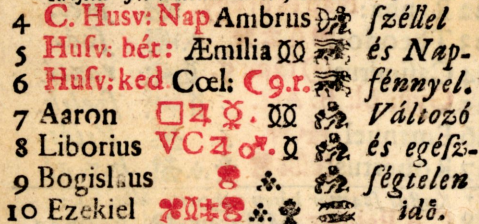 4 C. Husv: Nap Ambrus széllel
5 Husv: bét: Æmilia és Nap-
6 Husv: ked Cœl: ☾ 9.r. fénnyel.
7 Aaron □ ♃ ☿. Változó
8 Liborius VC ♃ ♂. és egész-
9 Bogislaus ségtelen
10 Ezekiel idő.